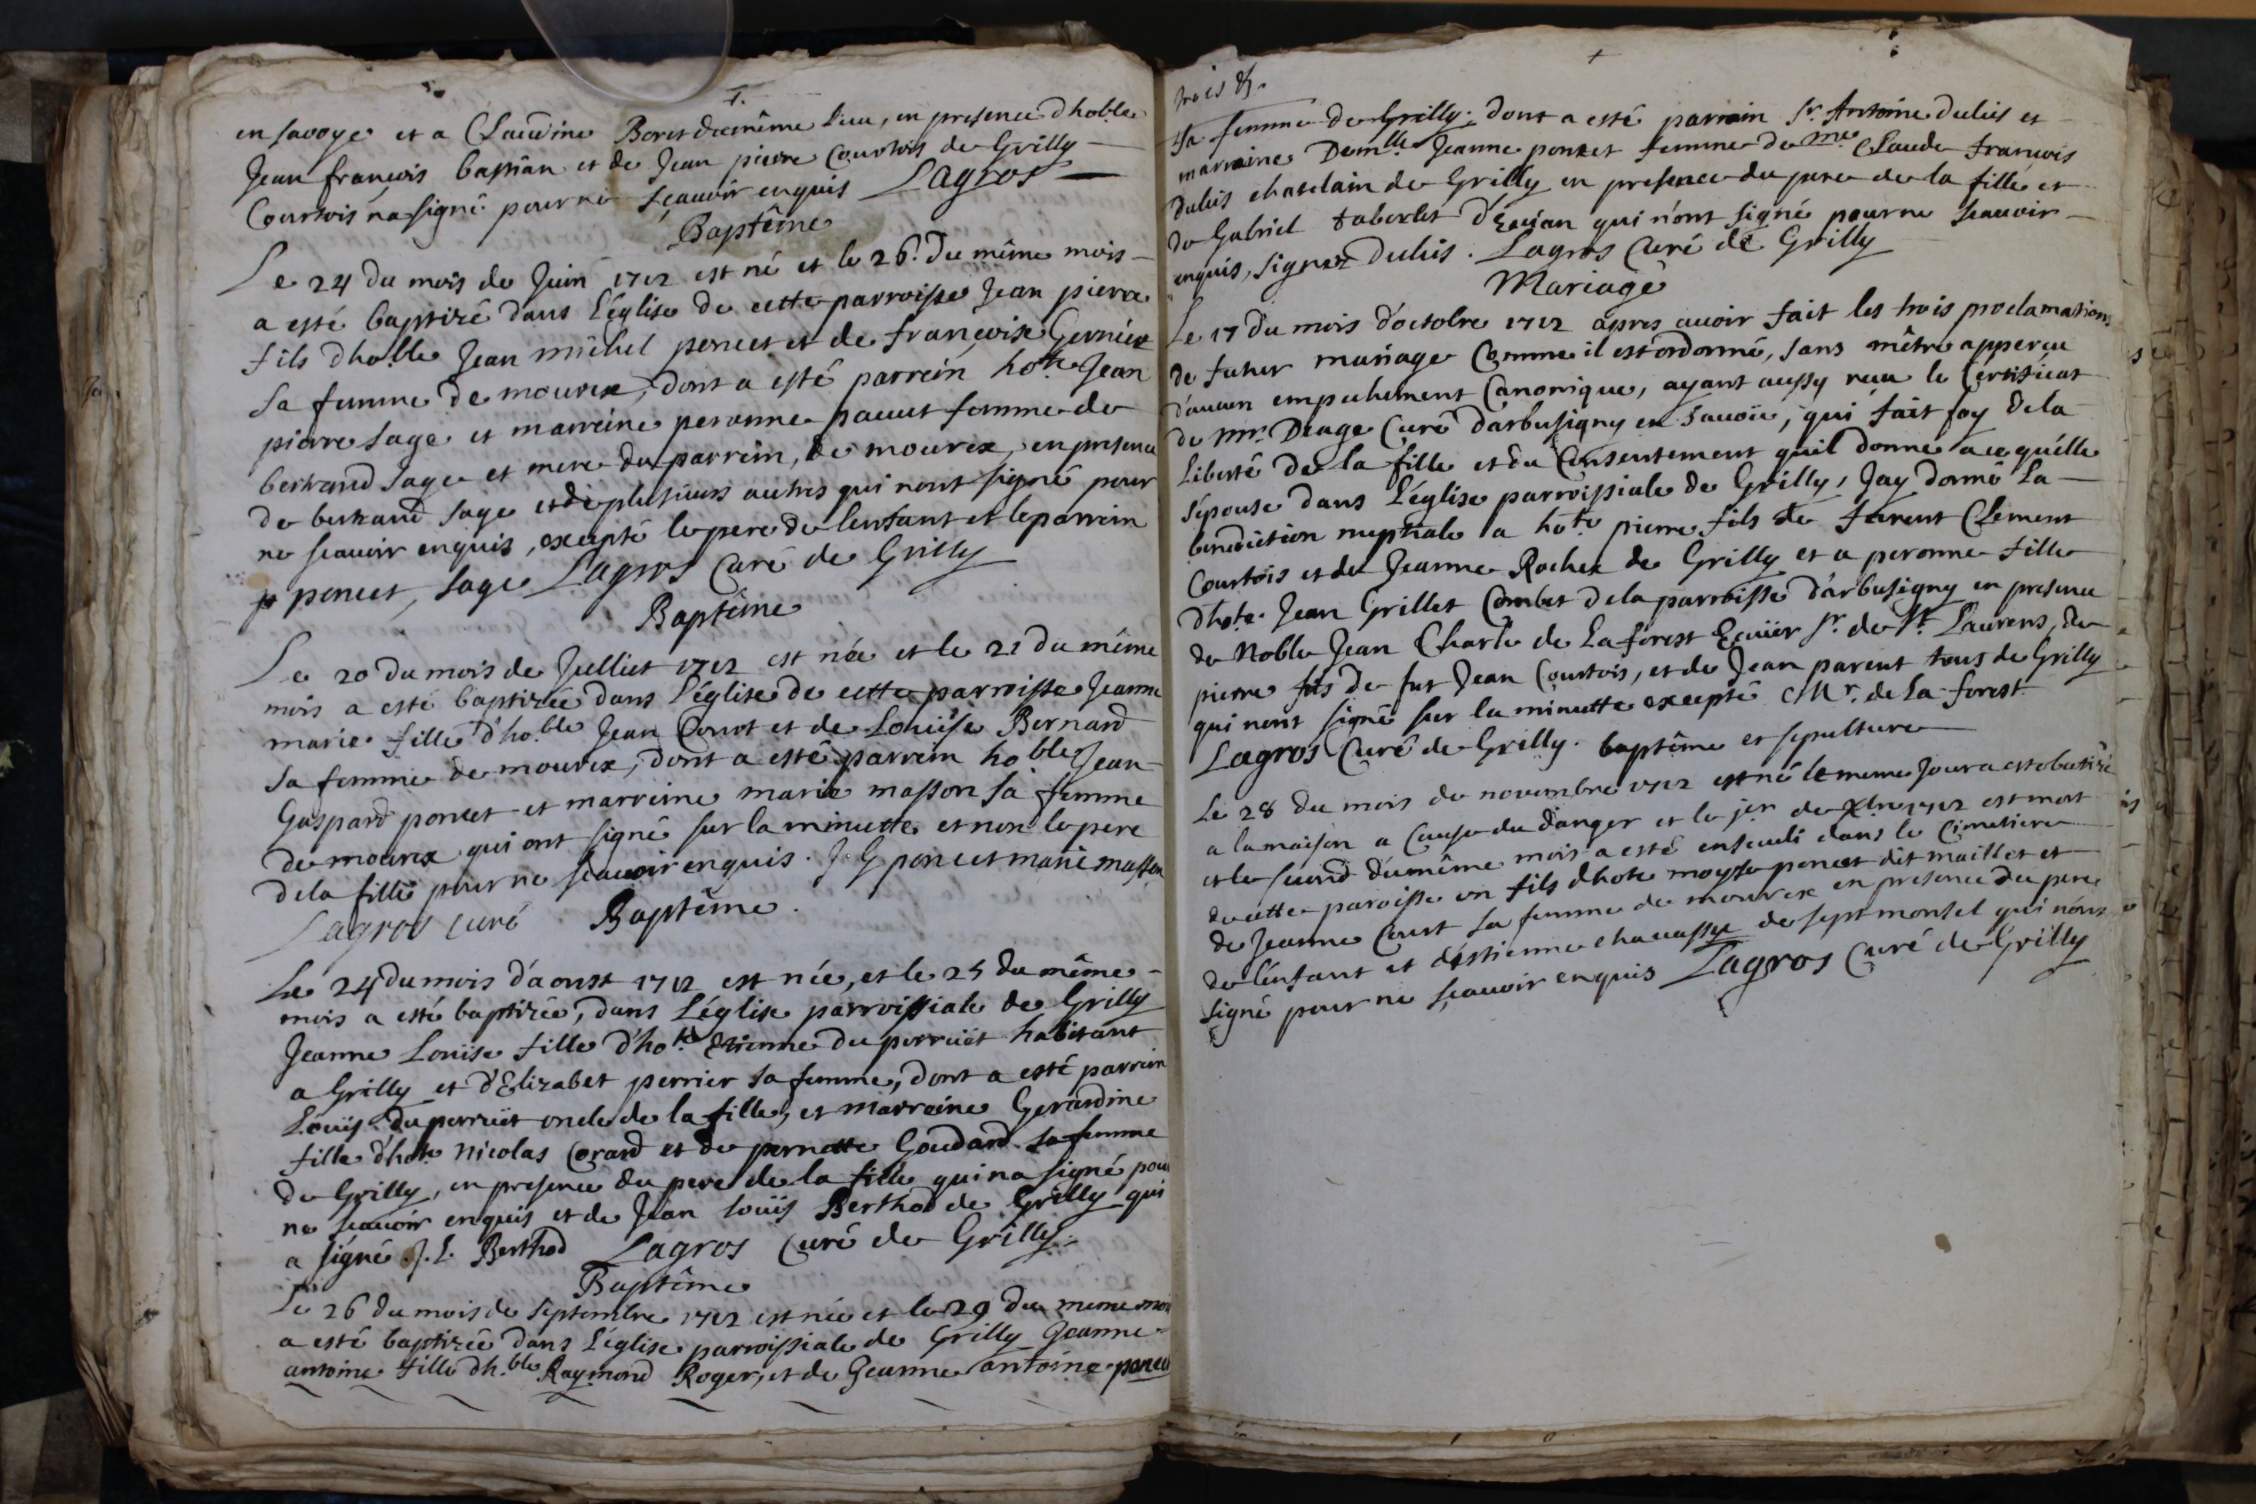 en savoye et a Claudine Boret du même lieu, en presence dhoble
Jean françois bastian et de Jean pierre Courtois de Grilly
Courtois na signé pour ne sçauoir enquis Lagros
Baptême
Le 24 du mois de Juin 1712 est né et le 26. du même mois
a esté baptizé dans L'église de cette parroisse Jean pierre
fils dhoble Jean michel poncet et de françoise Gernier
sa femme de mourex, dont a esté parrein hote Jean
pierre sage et marreine peronne femme de
bertrand sage et mere du parrein, de mourex, en presence
de bertrand sage et de plusieurs autres qui nont signé pour
ne sçauoir enquis, excepté le pere de lenfant et le parrein
poncet, sage Lagros Curé de Grilly
Baptême
Le 20 du mois de Julliet 1712 est née et le 21 du même
mois a esté baptizée dans l'église de cette parroisse Jeanne
marie fille d'hoble Jean Conrot et de Louise Bernard
sa femme de mourex, dont a esté parrein hoble Jean
Gaspard poncet et marreine marie masson sa femme
de mourex qui ont signé sur la minutte et non le pere
de la fille pour ne sçauoir enquis. J. G poncet marie masson
Lagros curé Baptême.
Le 24 du mois d'aoust 1712 est née, et le 25 du même
mois a esté baptizée, dans L'église parroissiale de Grilly
Jeanne Louise fille d'hote Etienne du perruit habitant
a Grilly et d'Elizabet perrier sa femme, dont a esté parrein
Loüis du perruit oncle de la fille, et marreine Gerardine
fille dhote Nicolas Corard et de pernette Goudard sa femme
de Grilly, en presence du pere de la fille qui na signé pour
ne sçauoir enquis et de Jean Loüis Berthod de Grilly qui
a signé. J. L. Berthod Lagros Curé de Grilly.
Baptême
Le 26 du mois de septembre 1712 est née et le 29 du meme mois
a esté baptizée dans L'église parroissiale de Grilly Jeanne
antoine fille dh.ble Raymond Roger, et de Jeanne antoine poncet
sa femme de Grilly; dont a esté parrain Sr. Antoine dulis et
marraine Demlle Jeanne poncet femme de me Claude françois
dulis chatelain de Grilly en presence du pere de la fille et
de Gabriel d'Euian qui n'ont signé pour ne sçauoir
enquis, signez Dulis. Lagros Curé de Grilly
Mariage
Le 17 du mois d'octobre 1712 apres auoir fait les trois proclamations
de futur mariage Comme il est ordonné, sans mêtre apperçu
d'aucun empechement Canonique, ayant aussy reçu le Certificat
de mr. Deage Curé d'arbusigny en sauoie, qui fait foy de la
liberté de la fille et du Consentement quil donne a ce qu'elle
s'épouse dans L'église parroissiale de Grilly, Jay donné La
benediction nuptiale a hote pierre fils de Clement
Courtois et de Jeanne Rochex de Grilly et a peronne fille
dhote Jean Grillet Combet de la parroisse d'arbusigny en presence
de Noble Jean Charle de Laforest Ecuiier Sr. de St. Laurens, de
pierre fils de fut Jean Courtois, et de Jean parent tous de Grilly
qui nont signé sur la minutte excepté Mr. de La forest
Lagros Curé de Grilly. baptême et sepulture
Le 28 du mois de novembre 1712 est né le meme jour a esté batizé
a la maison a Cause du danger et le jer. de Xbre 1712 est mort
et le second dumême mois a esté enseueli dans le Cimetiere
de cette paroisse un fils dhote moyse poncet dit maillet et
de Jeanne Court sa femme de mourex en presence du pere
de l'enfant et d'estienne chauassy de septmonsel qui nont
signé pour ne sçauoir enquis Lagros Curé de Grilly